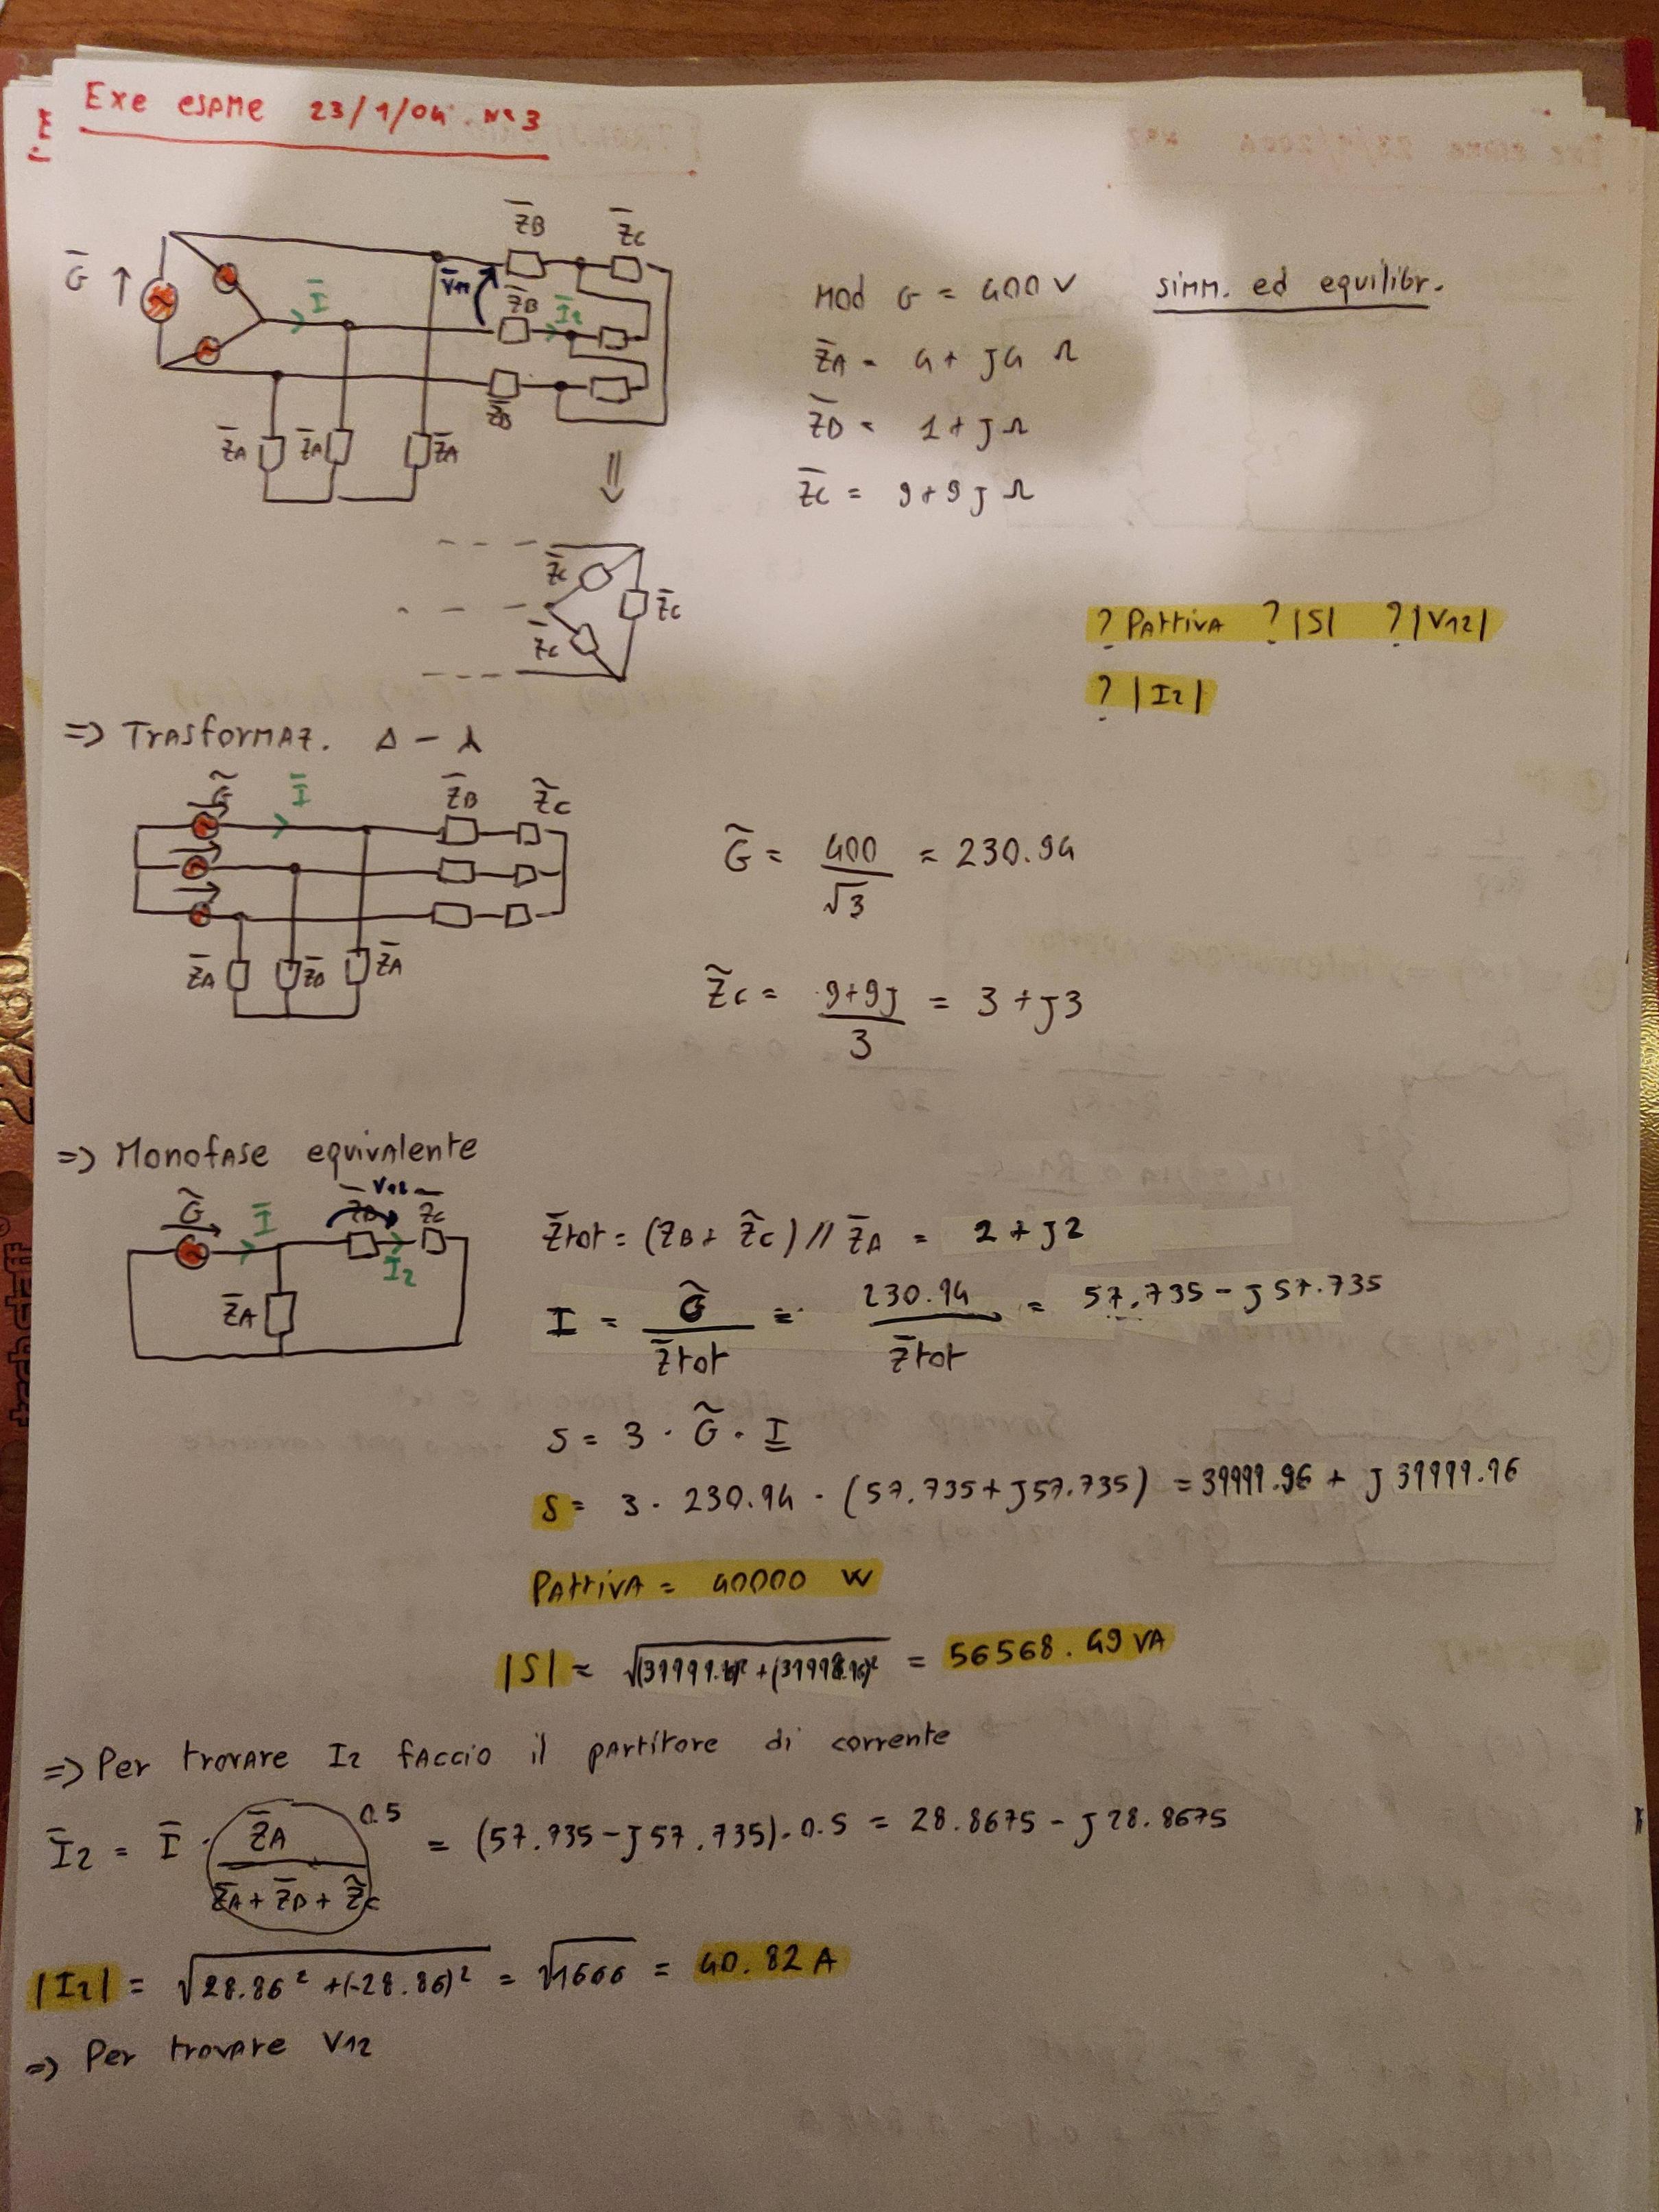 Exe esame 23/1/04 N°3
Z̅B Z̅C
G̅ ↑ V̅12 Z̅B
I̅ I̅2
Z̅B
Z̅A Z̅A Z̅A
Mod G = 400 V simm. ed equilibr.
Z̅A = 4 + j4 Ω
Z̅B = 1 + j Ω
Z̅C = 9 + 9j Ω
Z̅C
Z̅C
Z̅C
? Pattiva ? |S| ? |V12|
? |I2|
=> Trasformaz. Δ - λ
G̃ I̅ Z̅B Z̃C
Z̅A Z̅A Z̅A
G̃ = 400/√3 = 230.94
Z̃C = (9+9j)/3 = 3 + j3
=> Monofase equivalente
V12
G̃ I̅ Z̅B Z̃C
I̅2
Z̅A
Z̅tot = (ZB + Z̃C) // Z̅A = 2 + j2
I = G̃/Z̅tot = 230.94/Z̅tot = 57.735 - j57.735
S = 3 · G̃ · I̲
S = 3 · 230.94 · (57.735 + j57.735) = 39999.96 + j 39999.96
Pattiva = 40000 W
|S| = √((39999.96)² + (39999.96)²) = 56568.49 VA
=> Per trovare I2 faccio il partitore di corrente
0.5
I̅2 = I̅ · Z̅A/(Z̅A + Z̅B + Z̃C) = (57.735 - j57.735) · 0.5 = 28.8675 - j28.8675
|I2| = √(28.86² + (-28.86)²) = √1666 = 40.82 A
=> Per trovare V12
22x30